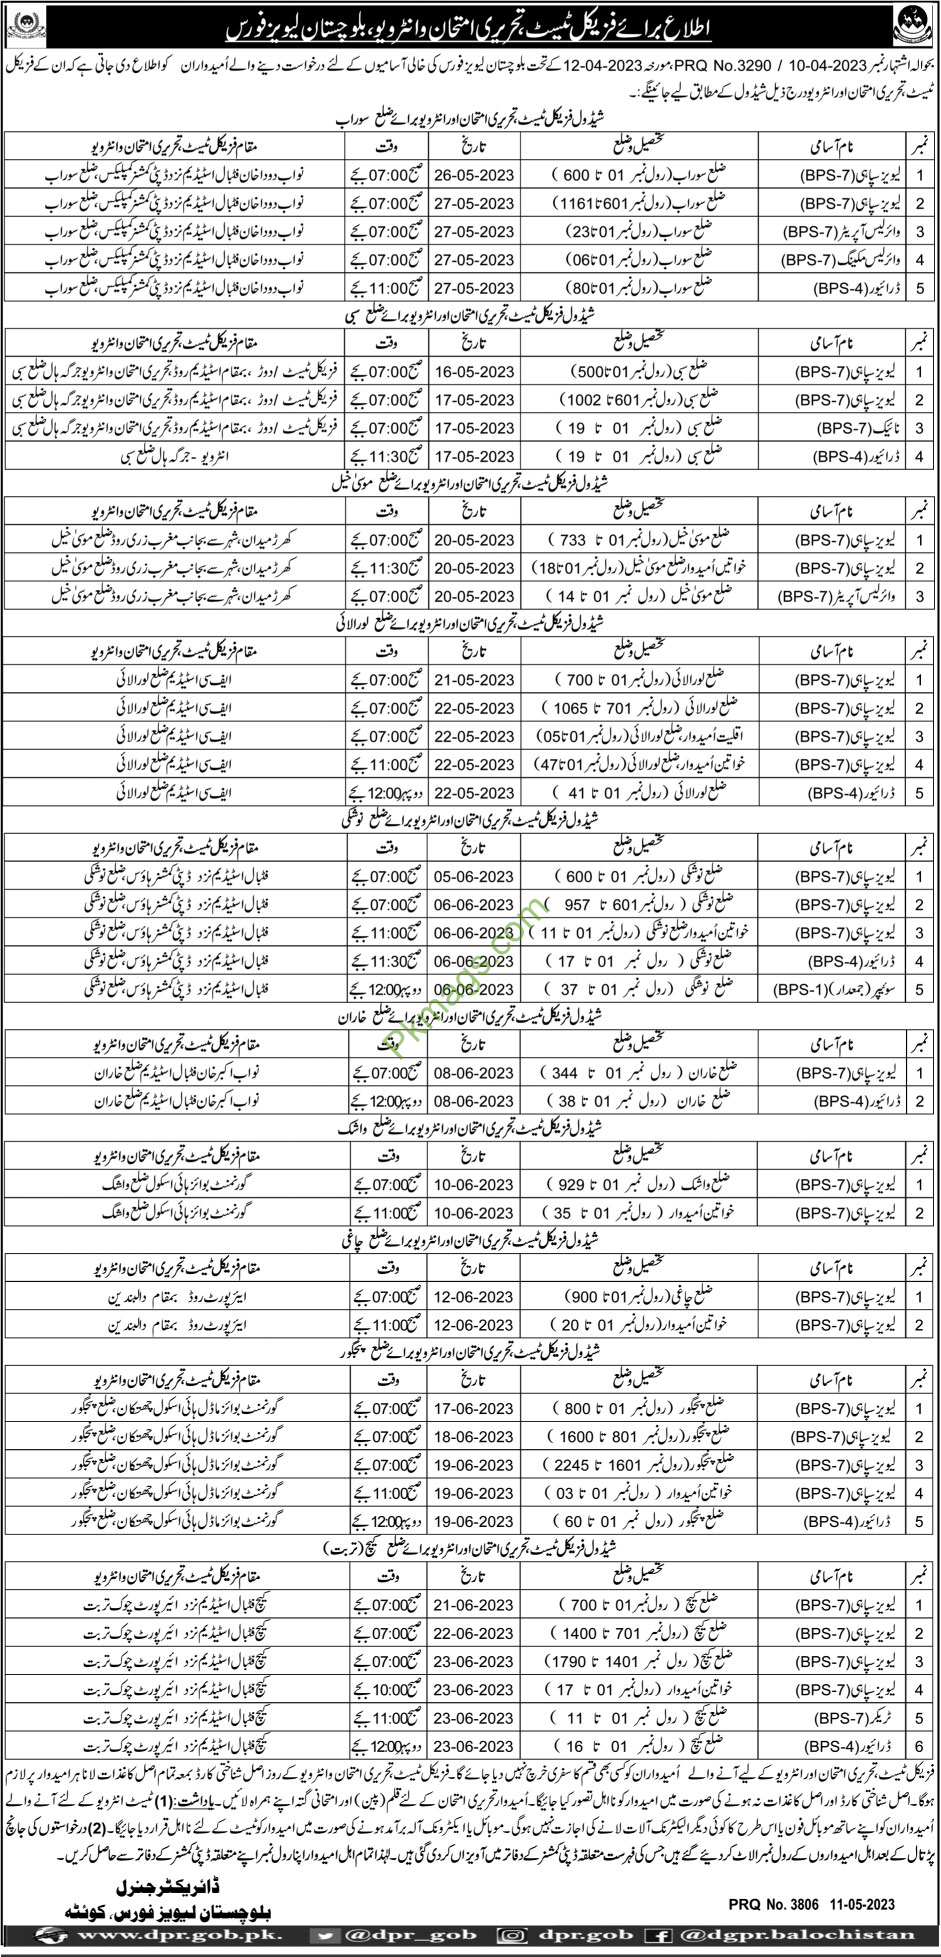 اطلاع برائے فزیکل ٹیسٹ، تحریری امتحان وانٹرویو، بلوچستان لیویز فورس
بحوالہ اشتہار نمبر PRQ No.3290 / 10-04-2023، مورخہ 12-04-2023 کے تحت بلوچستان لیویز فورس کی خالی آسامیوں کے لئے درخواست دینے والے اُمیدواران کو اطلاع دی جاتی ہے کہ ان کے فزیکل
ٹیسٹ، تحریری امتحان اور انٹرویو درج ذیل شیڈول کے مطابق لیے جائینگے:۔
شیڈول فزیکل ٹیسٹ، تحریری امتحان اور انٹرویو برائے ضلع سوراب
نمبر نام آسامی تحصیل وضلع تاریخ وقت مقام فزیکل ٹیسٹ، تحریری امتحان وانٹرویو
1 لیویز سپاہی (BPS-7) ضلع سوراب (رول نمبر 01 تا 600) 26-05-2023 صبح 07:00 بجے نواب دودا خان فٹبال اسٹیڈیم نزد ڈپٹی کمشنر کمپلیکس، ضلع سوراب
2 لیویز سپاہی (BPS-7) ضلع سوراب (رول نمبر 601 تا 1161) 27-05-2023 صبح 07:00 بجے نواب دودا خان فٹبال اسٹیڈیم نزد ڈپٹی کمشنر کمپلیکس، ضلع سوراب
3 وائرلیس آپریٹر (BPS-7) ضلع سوراب (رول نمبر 01 تا 23) 27-05-2023 صبح 07:00 بجے نواب دودا خان فٹبال اسٹیڈیم نزد ڈپٹی کمشنر کمپلیکس، ضلع سوراب
4 وائرلیس مکینک (BPS-7) ضلع سوراب (رول نمبر 01 تا 06) 27-05-2023 صبح 07:00 بجے نواب دودا خان فٹبال اسٹیڈیم نزد ڈپٹی کمشنر کمپلیکس، ضلع سوراب
5 ڈرائیور (BPS-4) ضلع سوراب (رول نمبر 01 تا 80) 27-05-2023 صبح 11:00 بجے نواب دودا خان فٹبال اسٹیڈیم نزد ڈپٹی کمشنر کمپلیکس، ضلع سوراب
شیڈول فزیکل ٹیسٹ، تحریری امتحان اور انٹرویو برائے ضلع سبی
نمبر نام آسامی تحصیل وضلع تاریخ وقت مقام فزیکل ٹیسٹ، تحریری امتحان وانٹرویو
1 لیویز سپاہی (BPS-7) ضلع سبی (رول نمبر 01 تا 500) 16-05-2023 صبح 07:00 بجے فزیکل ٹیسٹ / دوڑ، بمقام اسٹیڈیم روڈ، تحریری امتحان وانٹرویو جرگہ ہال ضلع سبی
2 لیویز سپاہی (BPS-7) ضلع سبی (رول نمبر 601 تا 1002) 17-05-2023 صبح 07:00 بجے فزیکل ٹیسٹ / دوڑ، بمقام اسٹیڈیم روڈ، تحریری امتحان وانٹرویو جرگہ ہال ضلع سبی
3 نائیک (BPS-7) ضلع سبی (رول نمبر 01 تا 19) 17-05-2023 صبح 07:00 بجے فزیکل ٹیسٹ / دوڑ، بمقام اسٹیڈیم روڈ، تحریری امتحان وانٹرویو جرگہ ہال ضلع سبی
4 ڈرائیور (BPS-4) ضلع سبی (رول نمبر 01 تا 19) 17-05-2023 صبح 11:30 بجے انٹرویو - جرگہ ہال ضلع سبی
شیڈول فزیکل ٹیسٹ، تحریری امتحان اور انٹرویو برائے ضلع موسیٰ خیل
نمبر نام آسامی تحصیل وضلع تاریخ وقت مقام فزیکل ٹیسٹ، تحریری امتحان وانٹرویو
1 لیویز سپاہی (BPS-7) ضلع موسیٰ خیل (رول نمبر 01 تا 733) 20-05-2023 صبح 07:00 بجے کھرڑ میدان، شہر سے بجانب مغرب زری روڈ ضلع موسیٰ خیل
2 لیویز سپاہی (BPS-7) خواتین اُمیدوار ضلع موسیٰ خیل (رول نمبر 01 تا 18) 20-05-2023 صبح 11:30 بجے کھرڑ میدان، شہر سے بجانب مغرب زری روڈ ضلع موسیٰ خیل
3 وائرلیس آپریٹر (BPS-7) ضلع موسیٰ خیل (رول نمبر 01 تا 14) 20-05-2023 صبح 07:00 بجے کھرڑ میدان، شہر سے بجانب مغرب زری روڈ ضلع موسیٰ خیل
شیڈول فزیکل ٹیسٹ، تحریری امتحان اور انٹرویو برائے ضلع لورالائی
نمبر نام آسامی تحصیل وضلع تاریخ وقت مقام فزیکل ٹیسٹ، تحریری امتحان وانٹرویو
1 لیویز سپاہی (BPS-7) ضلع لورالائی (رول نمبر 01 تا 700) 21-05-2023 صبح 07:00 بجے ایف سی اسٹیڈیم ضلع لورالائی
2 لیویز سپاہی (BPS-7) ضلع لورالائی (رول نمبر 701 تا 1065) 22-05-2023 صبح 07:00 بجے ایف سی اسٹیڈیم ضلع لورالائی
3 لیویز سپاہی (BPS-7) اقلیت اُمیدوار، ضلع لورالائی (رول نمبر 01 تا 05) 22-05-2023 صبح 07:00 بجے ایف سی اسٹیڈیم ضلع لورالائی
4 لیویز سپاہی (BPS-7) خواتین اُمیدوار، ضلع لورالائی (رول نمبر 01 تا 47) 22-05-2023 صبح 11:00 بجے ایف سی اسٹیڈیم ضلع لورالائی
5 ڈرائیور (BPS-4) ضلع لورالائی (رول نمبر 01 تا 41) 22-05-2023 دوپہر 12:00 بجے ایف سی اسٹیڈیم ضلع لورالائی
شیڈول فزیکل ٹیسٹ، تحریری امتحان اور انٹرویو برائے ضلع نوشکی
نمبر نام آسامی تحصیل وضلع تاریخ وقت مقام فزیکل ٹیسٹ، تحریری امتحان وانٹرویو
1 لیویز سپاہی (BPS-7) ضلع نوشکی (رول نمبر 01 تا 600) 05-06-2023 صبح 07:00 بجے فٹبال اسٹیڈیم نزد ڈپٹی کمشنر ہاؤس، ضلع نوشکی
2 لیویز سپاہی (BPS-7) ضلع نوشکی (رول نمبر 601 تا 957) 06-06-2023 صبح 07:00 بجے فٹبال اسٹیڈیم نزد ڈپٹی کمشنر ہاؤس، ضلع نوشکی
3 لیویز سپاہی (BPS-7) خواتین اُمیدوار ضلع نوشکی (رول نمبر 01 تا 11) 06-06-2023 صبح 11:00 بجے فٹبال اسٹیڈیم نزد ڈپٹی کمشنر ہاؤس، ضلع نوشکی
4 ڈرائیور (BPS-4) ضلع نوشکی (رول نمبر 01 تا 17) 06-06-2023 صبح 11:30 بجے فٹبال اسٹیڈیم نزد ڈپٹی کمشنر ہاؤس، ضلع نوشکی
5 سوئیپر (جمعدار) (BPS-1) ضلع نوشکی (رول نمبر 01 تا 37) 06-06-2023 دوپہر 12:00 بجے فٹبال اسٹیڈیم نزد ڈپٹی کمشنر ہاؤس، ضلع نوشکی
Pkmags.com
شیڈول فزیکل ٹیسٹ، تحریری امتحان اور انٹرویو برائے ضلع خاران
نمبر نام آسامی تحصیل وضلع تاریخ وقت مقام فزیکل ٹیسٹ، تحریری امتحان وانٹرویو
1 لیویز سپاہی (BPS-7) ضلع خاران (رول نمبر 01 تا 344) 08-06-2023 صبح 07:00 بجے نواب اکبر خان فٹبال اسٹیڈیم ضلع خاران
2 ڈرائیور (BPS-4) ضلع خاران (رول نمبر 01 تا 38) 08-06-2023 دوپہر 12:00 بجے نواب اکبر خان فٹبال اسٹیڈیم ضلع خاران
شیڈول فزیکل ٹیسٹ، تحریری امتحان اور انٹرویو برائے ضلع واشک
نمبر نام آسامی تحصیل وضلع تاریخ وقت مقام فزیکل ٹیسٹ، تحریری امتحان وانٹرویو
1 لیویز سپاہی (BPS-7) ضلع واشک (رول نمبر 01 تا 929) 10-06-2023 صبح 07:00 بجے گورنمنٹ بوائز ہائی اسکول ضلع واشک
2 لیویز سپاہی (BPS-7) خواتین اُمیدوار (رول نمبر 01 تا 35) 10-06-2023 صبح 11:00 بجے گورنمنٹ بوائز ہائی اسکول ضلع واشک
شیڈول فزیکل ٹیسٹ، تحریری امتحان اور انٹرویو برائے ضلع چاغی
نمبر نام آسامی تحصیل وضلع تاریخ وقت مقام فزیکل ٹیسٹ، تحریری امتحان وانٹرویو
1 لیویز سپاہی (BPS-7) ضلع چاغی (رول نمبر 01 تا 900) 12-06-2023 صبح 07:00 بجے ایئرپورٹ روڈ بمقام دالبندین
2 لیویز سپاہی (BPS-7) خواتین اُمیدوار (رول نمبر 01 تا 20) 12-06-2023 صبح 11:00 بجے ایئرپورٹ روڈ بمقام دالبندین
شیڈول فزیکل ٹیسٹ، تحریری امتحان اور انٹرویو برائے ضلع پنجگور
نمبر نام آسامی تحصیل وضلع تاریخ وقت مقام فزیکل ٹیسٹ، تحریری امتحان وانٹرویو
1 لیویز سپاہی (BPS-7) ضلع پنجگور (رول نمبر 01 تا 800) 17-06-2023 صبح 07:00 بجے گورنمنٹ بوائز ماڈل ہائی اسکول چھتکان، ضلع پنجگور
2 لیویز سپاہی (BPS-7) ضلع پنجگور (رول نمبر 801 تا 1600) 18-06-2023 صبح 07:00 بجے گورنمنٹ بوائز ماڈل ہائی اسکول چھتکان، ضلع پنجگور
3 لیویز سپاہی (BPS-7) ضلع پنجگور (رول نمبر 1601 تا 2245) 19-06-2023 صبح 07:00 بجے گورنمنٹ بوائز ماڈل ہائی اسکول چھتکان، ضلع پنجگور
4 لیویز سپاہی (BPS-7) خواتین اُمیدوار (رول نمبر 01 تا 03) 19-06-2023 صبح 11:00 بجے گورنمنٹ بوائز ماڈل ہائی اسکول چھتکان، ضلع پنجگور
5 ڈرائیور (BPS-4) ضلع پنجگور (رول نمبر 01 تا 60) 19-06-2023 دوپہر 12:00 بجے گورنمنٹ بوائز ماڈل ہائی اسکول چھتکان، ضلع پنجگور
شیڈول فزیکل ٹیسٹ، تحریری امتحان اور انٹرویو برائے ضلع کیچ (تربت)
نمبر نام آسامی تحصیل وضلع تاریخ وقت مقام فزیکل ٹیسٹ، تحریری امتحان وانٹرویو
1 لیویز سپاہی (BPS-7) ضلع کیچ (رول نمبر 01 تا 700) 21-06-2023 صبح 07:00 بجے کیچ فٹبال اسٹیڈیم نزد ائیرپورٹ چوک تربت
2 لیویز سپاہی (BPS-7) ضلع کیچ (رول نمبر 701 تا 1400) 22-06-2023 صبح 07:00 بجے کیچ فٹبال اسٹیڈیم نزد ائیرپورٹ چوک تربت
3 لیویز سپاہی (BPS-7) ضلع کیچ (رول نمبر 1401 تا 1790) 23-06-2023 صبح 07:00 بجے کیچ فٹبال اسٹیڈیم نزد ائیرپورٹ چوک تربت
4 لیویز سپاہی (BPS-7) خواتین اُمیدوار (رول نمبر 01 تا 17) 23-06-2023 صبح 10:00 بجے کیچ فٹبال اسٹیڈیم نزد ائیرپورٹ چوک تربت
5 ٹریکر (BPS-7) ضلع کیچ (رول نمبر 01 تا 11) 23-06-2023 صبح 11:00 بجے کیچ فٹبال اسٹیڈیم نزد ائیرپورٹ چوک تربت
6 ڈرائیور (BPS-4) ضلع کیچ (رول نمبر 01 تا 16) 23-06-2023 دوپہر 12:00 بجے کیچ فٹبال اسٹیڈیم نزد ائیرپورٹ چوک تربت
فزیکل ٹیسٹ، تحریری امتحان اور انٹرویو کے لیے آنے والے اُمیدواران کو کسی بھی قسم کا سفری خرچ نہیں دیا جائے گا۔ فزیکل ٹیسٹ، تحریری امتحان وانٹرویو کے روز اصل شناختی کارڈ بمعہ تمام اصل کاغذات لانا ہر امیدوار پر لازم
ہوگا۔ اصل شناختی کارڈ اور اصل کاغذات نہ ہونے کی صورت میں امیدوار کو نااہل تصور کیا جائیگا۔ اُمیدوار تحریری امتحان کے لئے قلم (پین) اور امتحانی گتہ اپنے ہمراہ لائیں۔ یاداشت: (1) ٹیسٹ انٹرویو کے لئے آنے والے
اُمیدواران کو اپنے ساتھ موبائل فون یا اس طرح کا کوئی دیگر الیکٹرنک آلات لانے کی اجازت نہیں ہوگی۔ موبائل یا الیکٹرونک آلہ برآمد ہونے کی صورت میں امیدوار کو ٹیسٹ کے لئے نااہل قرار دیا جائیگا۔ (2) درخواستوں کی جانچ
پڑتال کے بعد اہل امیدواروں کے رول نمبر الاٹ کردیئے گئے ہیں جس کی فہرست متعلقہ ڈپٹی کمشنر کے دفاتر میں آویزاں کر دی گئی ہیں۔ لہٰذا تمام اہل امیدوار اپنا رول نمبر اپنے متعلقہ ڈپٹی کمشنر کے دفاتر سے حاصل کریں۔
ڈائریکٹر جنرل
بلوچستان لیویز فورس، کوئٹہ
PRQ No. 3806 11-05-2023
www.dpr.gob.pk. @dpr_gob dpr.gob @dgpr.balochistan